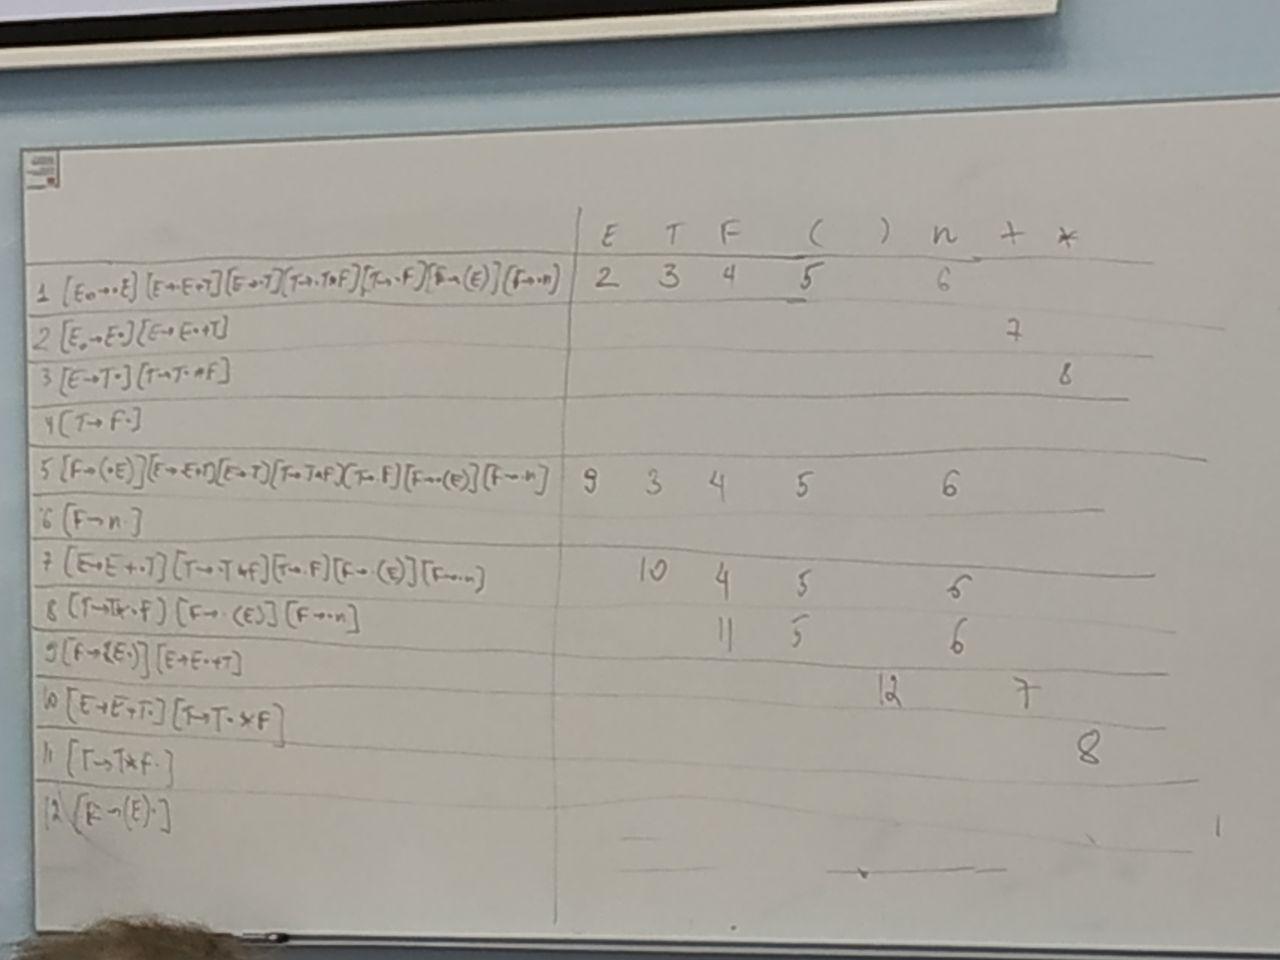 E T F ( ) n + *
1 [E₀→•E] [E→•E+T] [E→•T] [T→•T*F] [T→•F] [F→•(E)] [F→•n] 2 3 4 5 6
2 [E₀→E•] [E→E•+T] 7
3 [E→T•] [T→T•*F] 8
4 [T→F•]
5 [F→(•E)] [E→•E+T] [E→•T] [T→•T*F] [T→•F] [F→•(E)] [F→•n] 9 3 4 5 6
6 [F→n•]
7 [E→E+•T] [T→•T*F] [T→•F] [F→•(E)] [F→•n] 10 4 5 6
8 [T→T*•F] [F→•(E)] [F→•n] 11 5 6
9 [F→(E•)] [E→E•+T] 12 7
10 [E→E+T•] [T→T•*F] 8
11 [T→T*F•]
12 [F→(E)•]